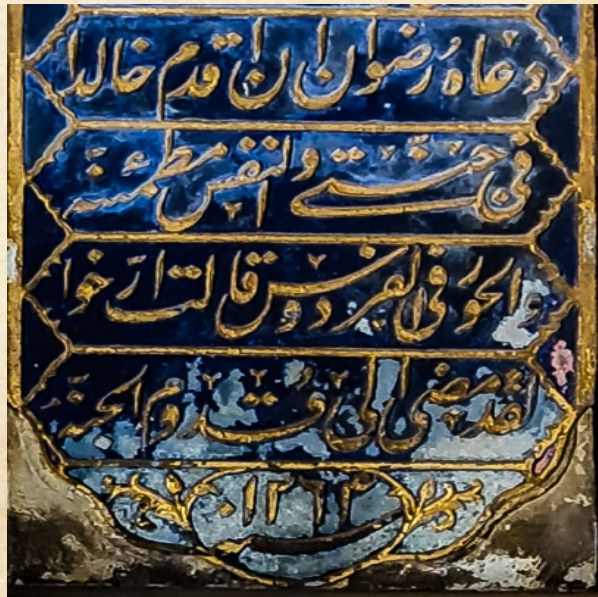 دعاه رُضوان ان اقدم خالدا
في جنّتي والنفس مطمئنّة
والحور في الفردوس قالت ارّخوا
لقد مضى الى قدوم الجنّة
١٢٦٣